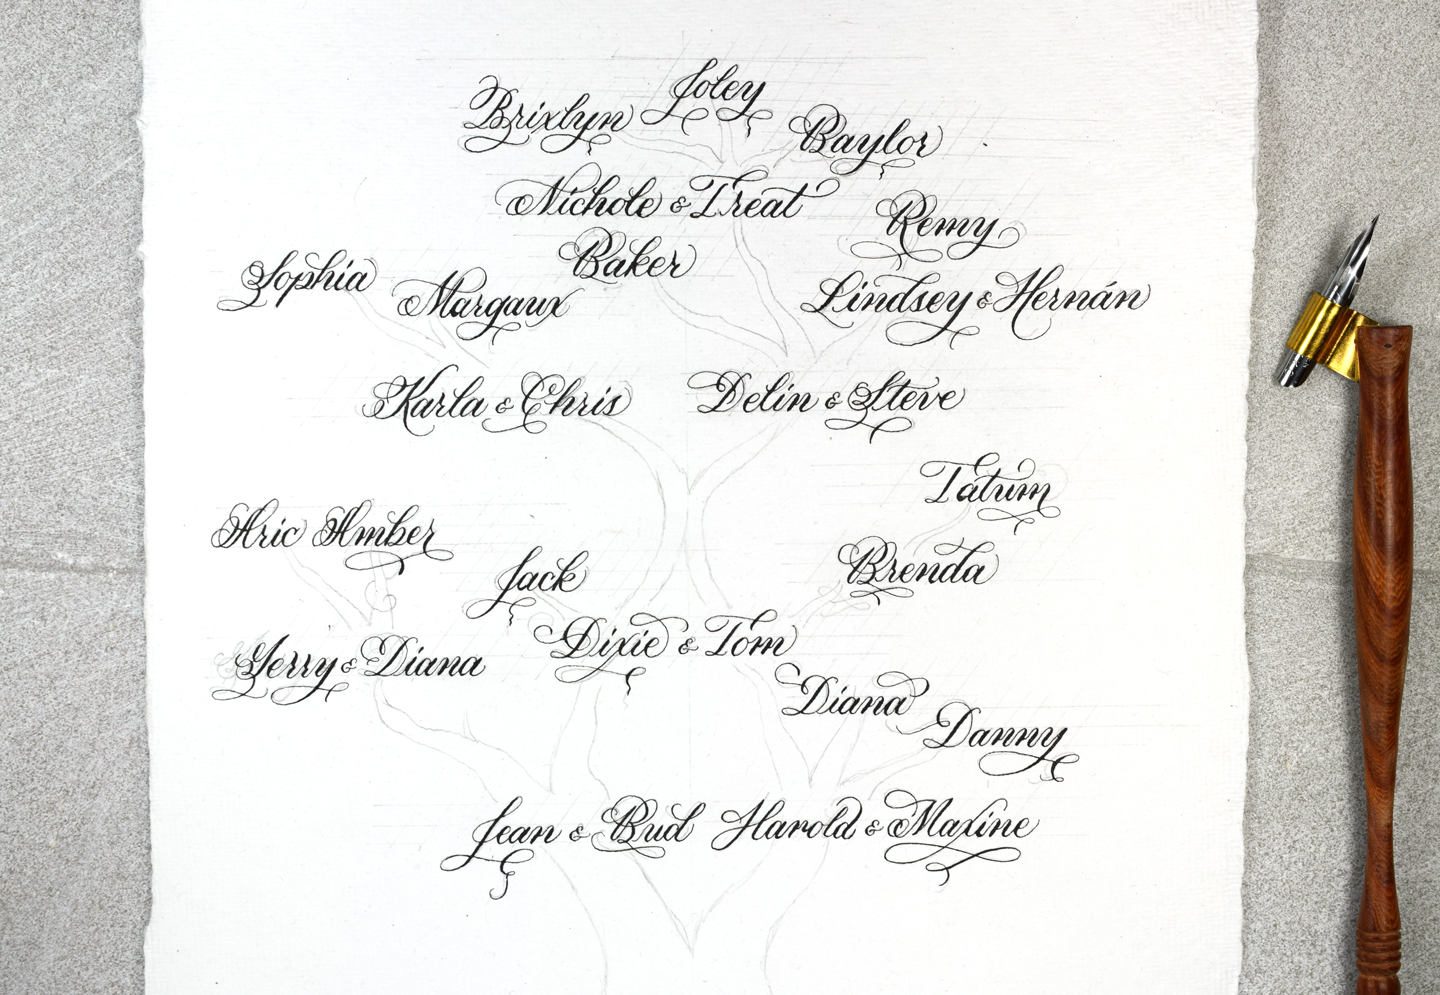 Joley
Brixlyn
Baylor
Nichole & Treat
Remy
Baker
Sophia
Margaux
Lindsey & Hernán
Karla & Chris
Delin & Steve
Tatum
Aric Amber
Jack
Brenda
Dixie & Tom
Jerry & Diana
Diana
Danny
Jean & Bud
Harold & Maxine